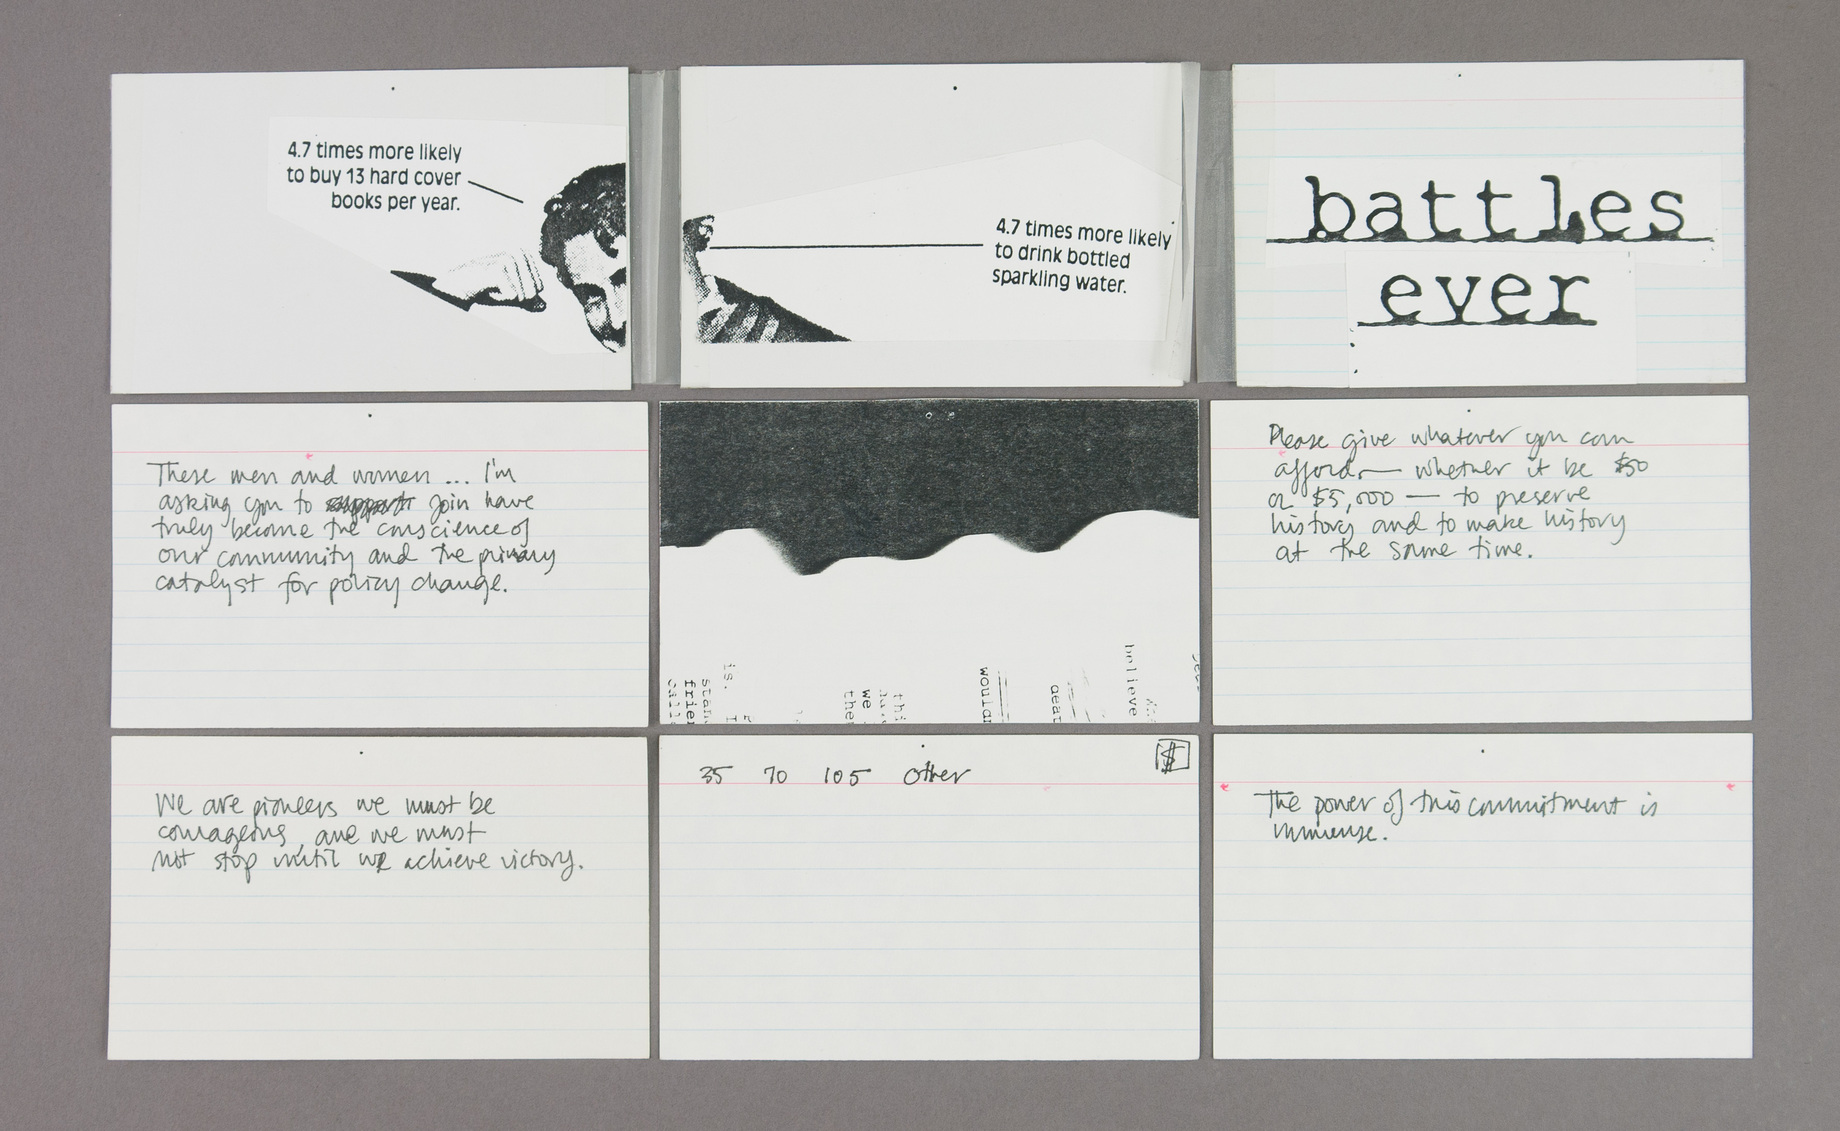 4.7 times more likely
to buy 13 hard cover
books per year.
4.7 times more likely
to drink bottled
sparkling water.
battles
ever
These men and women ... I'm
asking you to support join have
truly become the conscience of
our community and the primary
catalyst for policy change.
is.
I
stan
frien
call
thi
we
the
would
dear
believe
Please give whatever you can
afford — whether it be $50
or $5,000 — to preserve
history and to make history
at the same time.
We are pioneers we must be
courageous, and we must
not stop until we achieve victory.
35 70 105 Other
$
The power of this commitment is
immense.